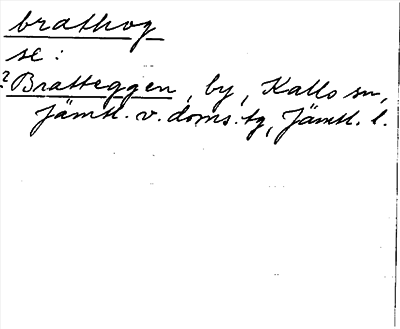 brathog
se:
? Bratteggen, by, Kalls sn,
Jämtl. v. doms. tg, Jämtl. l.